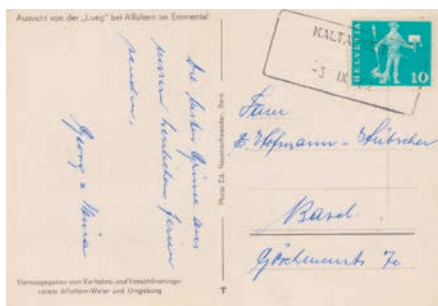 Aussicht von der „Lueg" bei Affoltern im Emmental
Die besten Grüsse aus
unsern herrlichen Ferien
senden,
Georg + Maria
Herausgegeben vom Verkehrs- und Verschönerungs-
verein Affoltern-Weier und Umgebung
Photo Ed. Neuenschwander, Bern
KALTA
-3 IX
HELVETIA
10
Fam
E Hofmann-Hübscher
Basel.